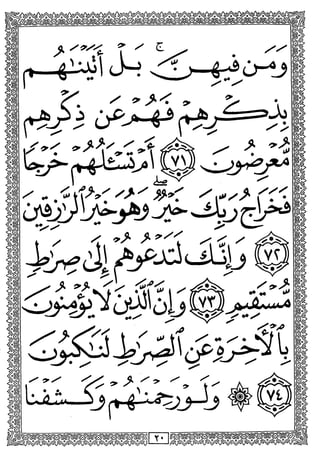 وَمَن فِيهِنَّ ۚ بَلْ أَتَيْنَٰهُم
بِذِكْرِهِمْ فَهُمْ عَن ذِكْرِهِم
مُّعْرِضُونَ ﴿٧١﴾ أَمْ تَسْـَٔلُهُمْ خَرْجًا
فَخَرَاجُ رَبِّكَ خَيْرٌ ۖ وَهُوَ خَيْرُ الرَّٰزِقِينَ
﴿٧٢﴾ وَإِنَّكَ لَتَدْعُوهُمْ إِلَىٰ صِرَاطٍ
مُّسْتَقِيمٍ ﴿٧٣﴾ وَإِنَّ الَّذِينَ لَا يُؤْمِنُونَ
بِالْأَخِرَةِ عَنِ الصِّرَاطِ لَنَاكِبُونَ
﴿٧٤﴾ ۞ وَلَوْ رَحِمْنَاهُمْ وَكَشَفْنَا
٢٠